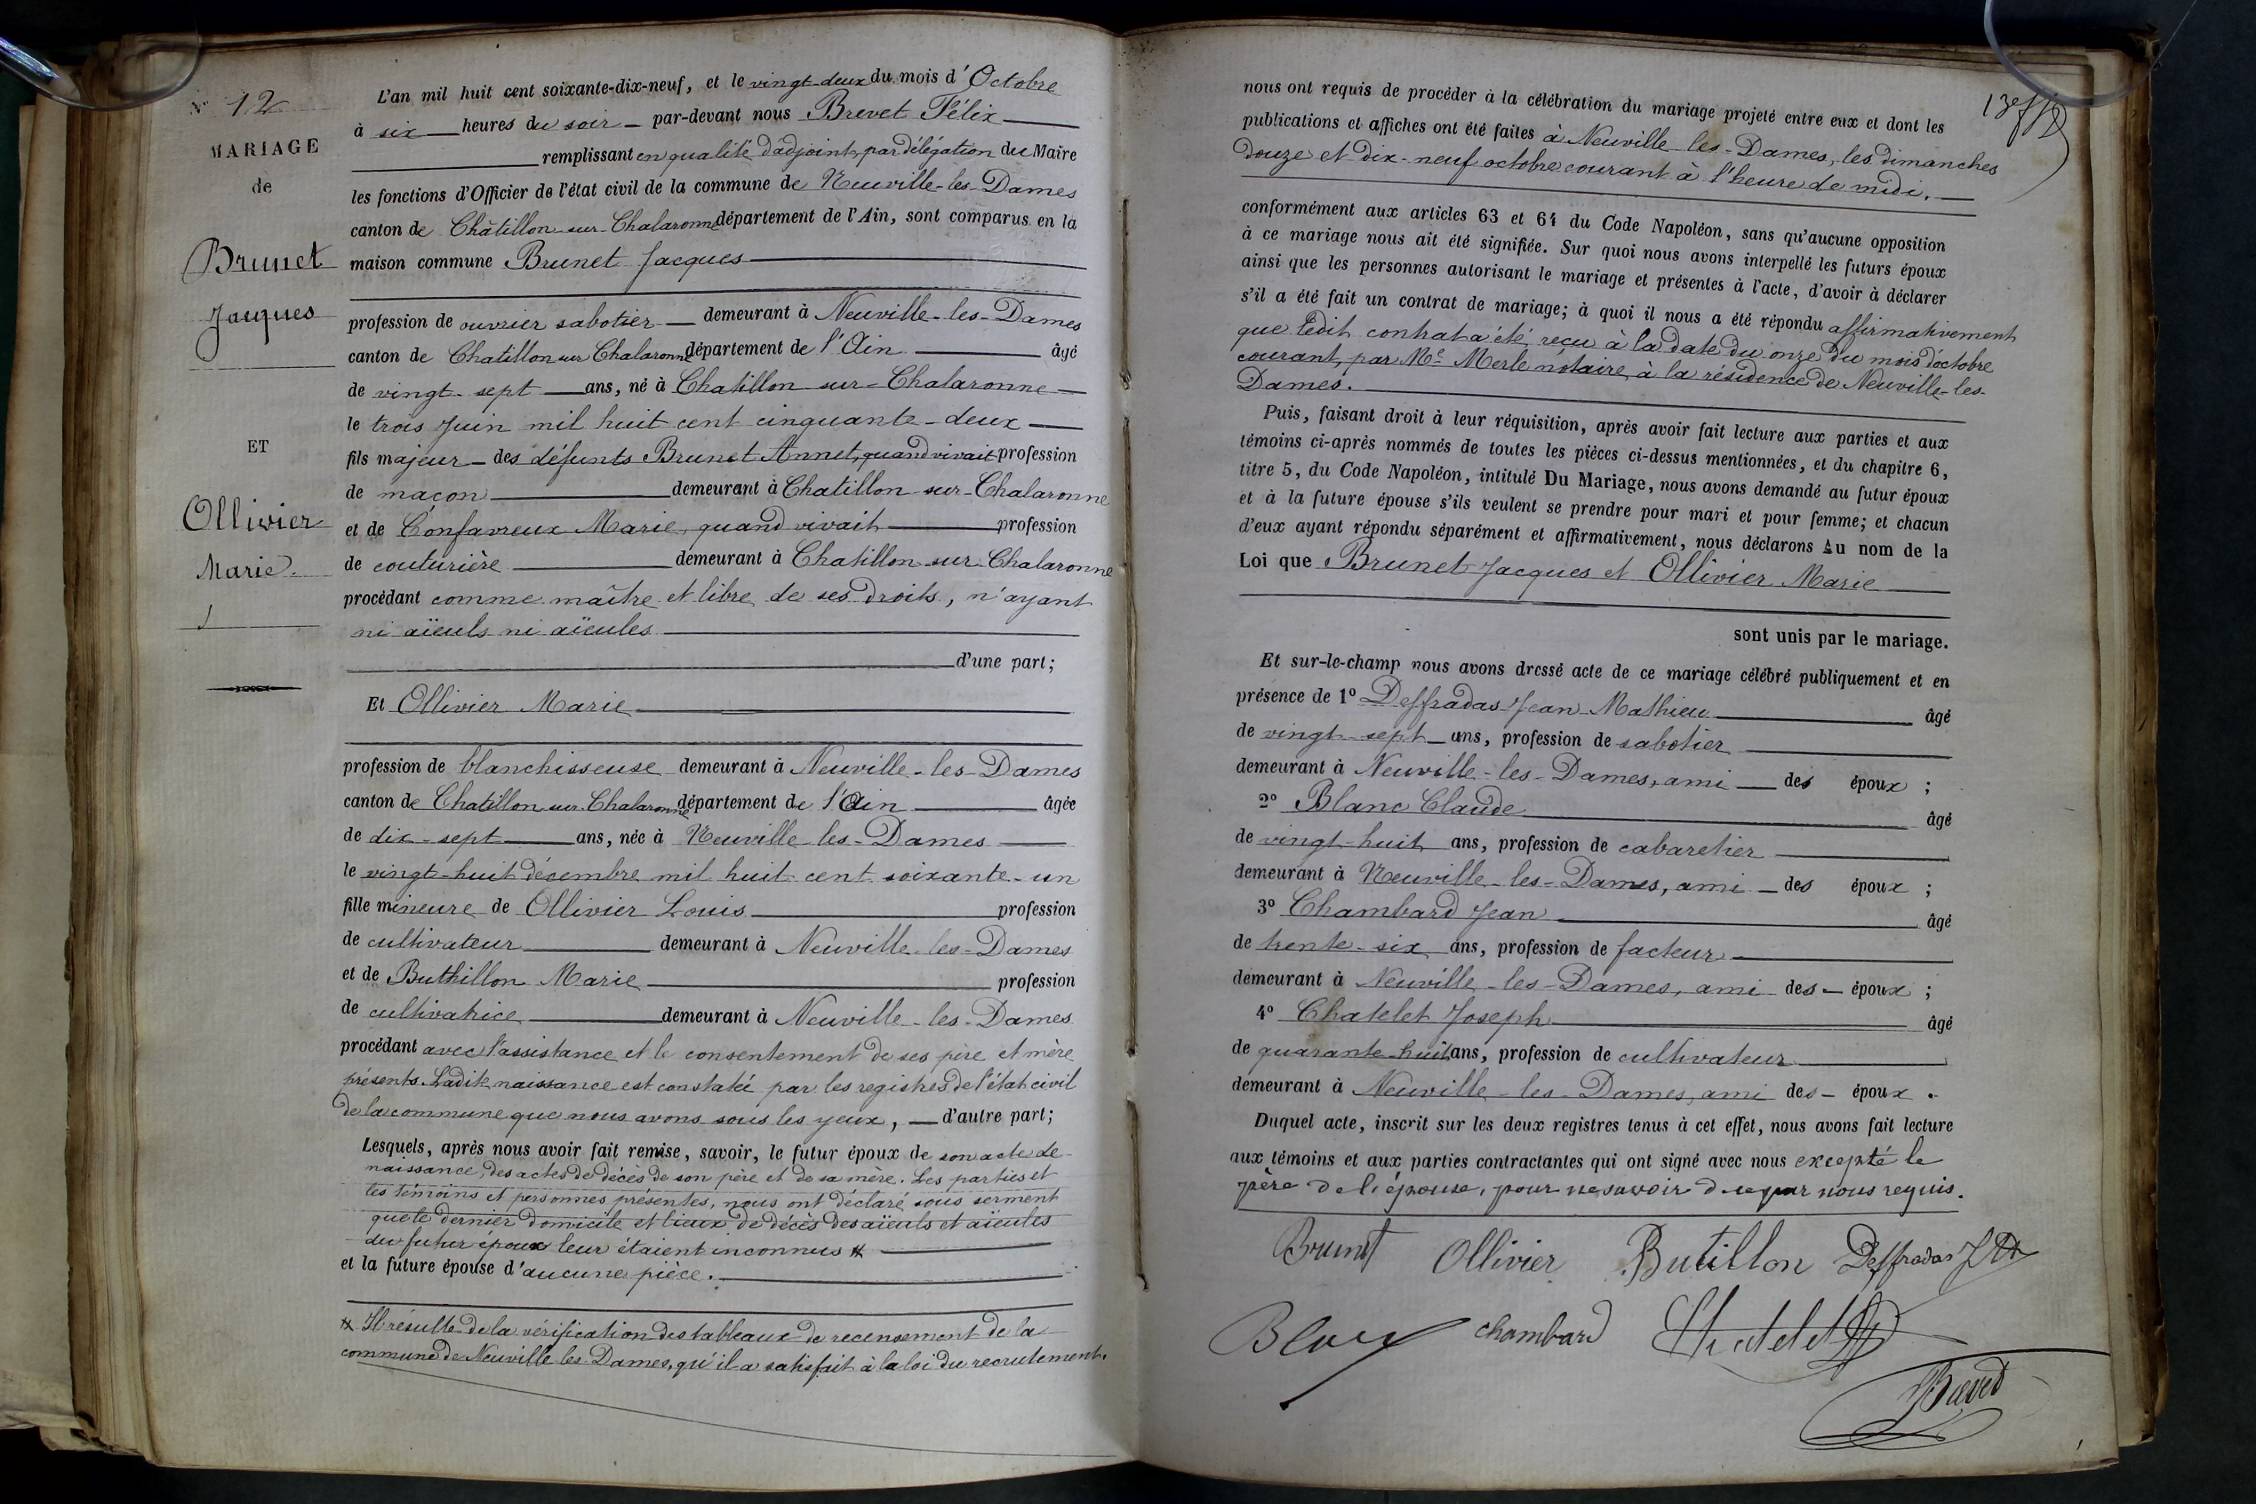 N° 12
MARIAGE
de
Brunet
Jacques
ET
Ollivier
Marie.
L'an mil huit cent soixante-dix-neuf, et le vingt-deux du mois d'Octobre
à six heures du soir par-devant nous Brevet Félix
remplissant en qualité d'adjoint, par délégation du Maire
les fonctions d'Officier de l'état civil de la commune de Neuville-les-Dames
canton de Châtillon-sur-Chalaronne département de l'Ain, sont comparus en la
maison commune Brunet Jacques
profession de ouvrier sabotier demeurant à Neuville-les-Dames
canton de Chatillon sur Chalaronne département de l'Ain âgé
de vingt-sept ans, né à Chatillon-sur-Chalaronne
le trois Juin mil huit cent cinquante-deux
fils majeur des défunts Brunet Annet, quand vivait profession
de maçon demeurant à Chatillon-sur-Chalaronne
et de Confavreux Marie, quand vivait profession
de couturière demeurant à Chatillon-sur-Chalaronne
procédant comme maître et libre de ses droits, n'ayant
ni aïeuls ni aïeules
d'une part;
Et Ollivier Marie
profession de blanchisseuse demeurant à Neuville-les-Dames
canton de Chatillon-sur-Chalaronne département de l'Ain âgée
de dix-sept ans, née à Neuville-les-Dames
le vingt-huit décembre mil huit cent soixante-un
fille mineure de Ollivier Louis profession
de cultivateur demeurant à Neuville-les-Dames
et de Buthillon Marie profession
de cultivatrice demeurant à Neuville-les-Dames
procédant avec l'assistance et le consentement de ses père et mère
présents. Ladite naissance est constatée par les registres de l'état civil
de la commune que nous avons sous les yeux, d'autre part;
Lesquels, après nous avoir fait remise, savoir, le futur époux de son acte de
naissance, des actes de décès de son père et de sa mère. Les parties et
les témoins et personnes présentes, nous ont déclaré sous serment
que le dernier domicile et lieux de décès des aïeuls et aïeules
du futur époux leur étaient inconnus #
et la future épouse d'aucune pièce.
# Il résulte de la vérification des tableaux de recensement de la
commune de Neuville les Dames, qu'il a satisfait à la loi du recrutement.
nous ont requis de procéder à la célébration du mariage projeté entre eux et dont les
publications et affiches ont été faites à Neuville-les-Dames, les dimanches
douze et dix-neuf octobre courant à l'heure de midi.
conformément aux articles 63 et 64 du Code Napoléon, sans qu'aucune opposition
à ce mariage nous ait été signifiée. Sur quoi nous avons interpellé les futurs époux
ainsi que les personnes autorisant le mariage et présentes à l'acte, d'avoir à déclarer
s'il a été fait un contrat de mariage; à quoi il nous a été répondu affirmativement
que ledit contrat a été reçu à la date du onze du mois d'octobre
courant, par Me Merle notaire, à la résidence de Neuville-les-
Dames.
Puis, faisant droit à leur réquisition, après avoir fait lecture aux parties et aux
témoins ci-après nommés de toutes les pièces ci-dessus mentionnées, et du chapitre 6,
titre 5, du Code Napoléon, intitulé Du Mariage, nous avons demandé au futur époux
et à la future épouse s'ils veulent se prendre pour mari et pour femme; et chacun
d'eux ayant répondu séparément et affirmativement, nous déclarons Au nom de la
Loi que Brunet Jacques et Ollivier Marie
sont unis par le mariage.
Et sur-le-champ nous avons dressé acte de ce mariage célébré publiquement et en
présence de 1° Deffradas Jean-Mathieu âgé
de vingt-sept ans, profession de sabotier
demeurant à Neuville-les-Dames, ami des époux ;
2° Blanc Claude âgé
de vingt-huit ans, profession de cabaretier
demeurant à Neuville-les-Dames, ami des époux ;
3° Chambard Jean âgé
de trente-six ans, profession de facteur
demeurant à Neuville-les-Dames, ami des époux ;
4° Chatelet Joseph âgé
de quarante-huit ans, profession de cultivateur
demeurant à Neuville-les-Dames, ami des époux .
Duquel acte, inscrit sur les deux registres tenus à cet effet, nous avons fait lecture
aux témoins et aux parties contractantes qui ont signé avec nous excepté le
père de l'épouse, pour ne savoir de ce par nous requis.
Brunet Ollivier Butillon Deffradas J M
Blanc chambard Chatelet
Brevet